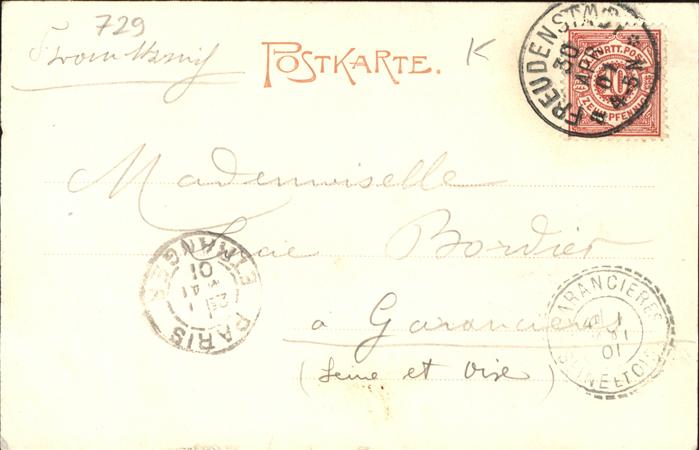 729
POSTKARTE.
K
FREUDENSTADT
30 APR 01
WÜRTT. POST
10
ZEHN PFENNIG
Mademoiselle
Lucie Bordier
à Garancières
(Seine et Oise)
PARIS ETRANGER
01
GARANCIERES
1
01
SEINE ET OISE